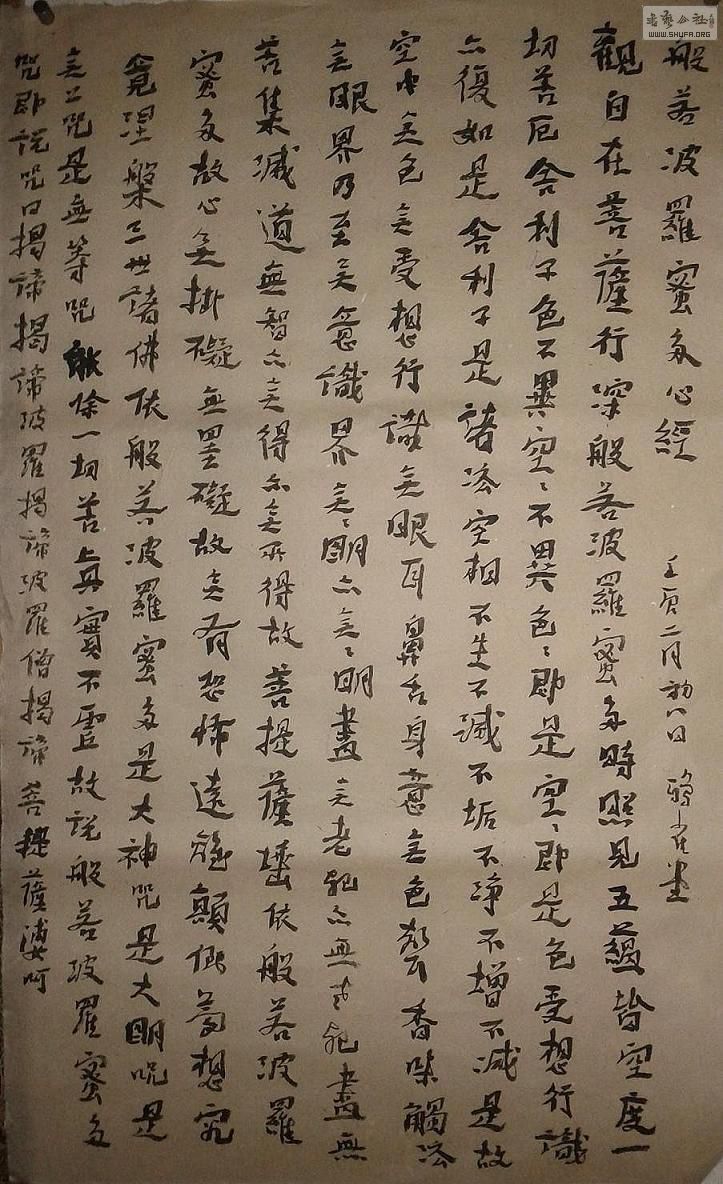 般若波羅蜜多心經 壬寅二月初八日
觀自在菩薩行深般若波羅蜜多時照見五蘊皆空度一
切苦厄舍利子色不異空〻不異色〻即是空〻即是色受想行識
亦復如是舍利子是諸法空相不生不滅不垢不淨不增不减是故
空中无色无受想行識无眼耳鼻舌身意无色聲香味觸法
无眼界乃至无意識界无〻明亦无〻明盡无老死亦無老死盡無
苦集滅道無智亦无得亦无所得故菩提薩埵依般若波羅
蜜多故心无掛礙無罣礙故无有恐怖遠離顛倒夢想究
竟涅槃三世諸佛依般若波羅蜜多是大神咒是大明咒是
无上咒是無等咒能除一切苦真實不虛故說般若波羅蜜多
咒即說咒曰揭諦揭諦波羅揭諦波羅僧揭諦菩提薩婆呵
書藝公社
WWW.SHUFA.ORG